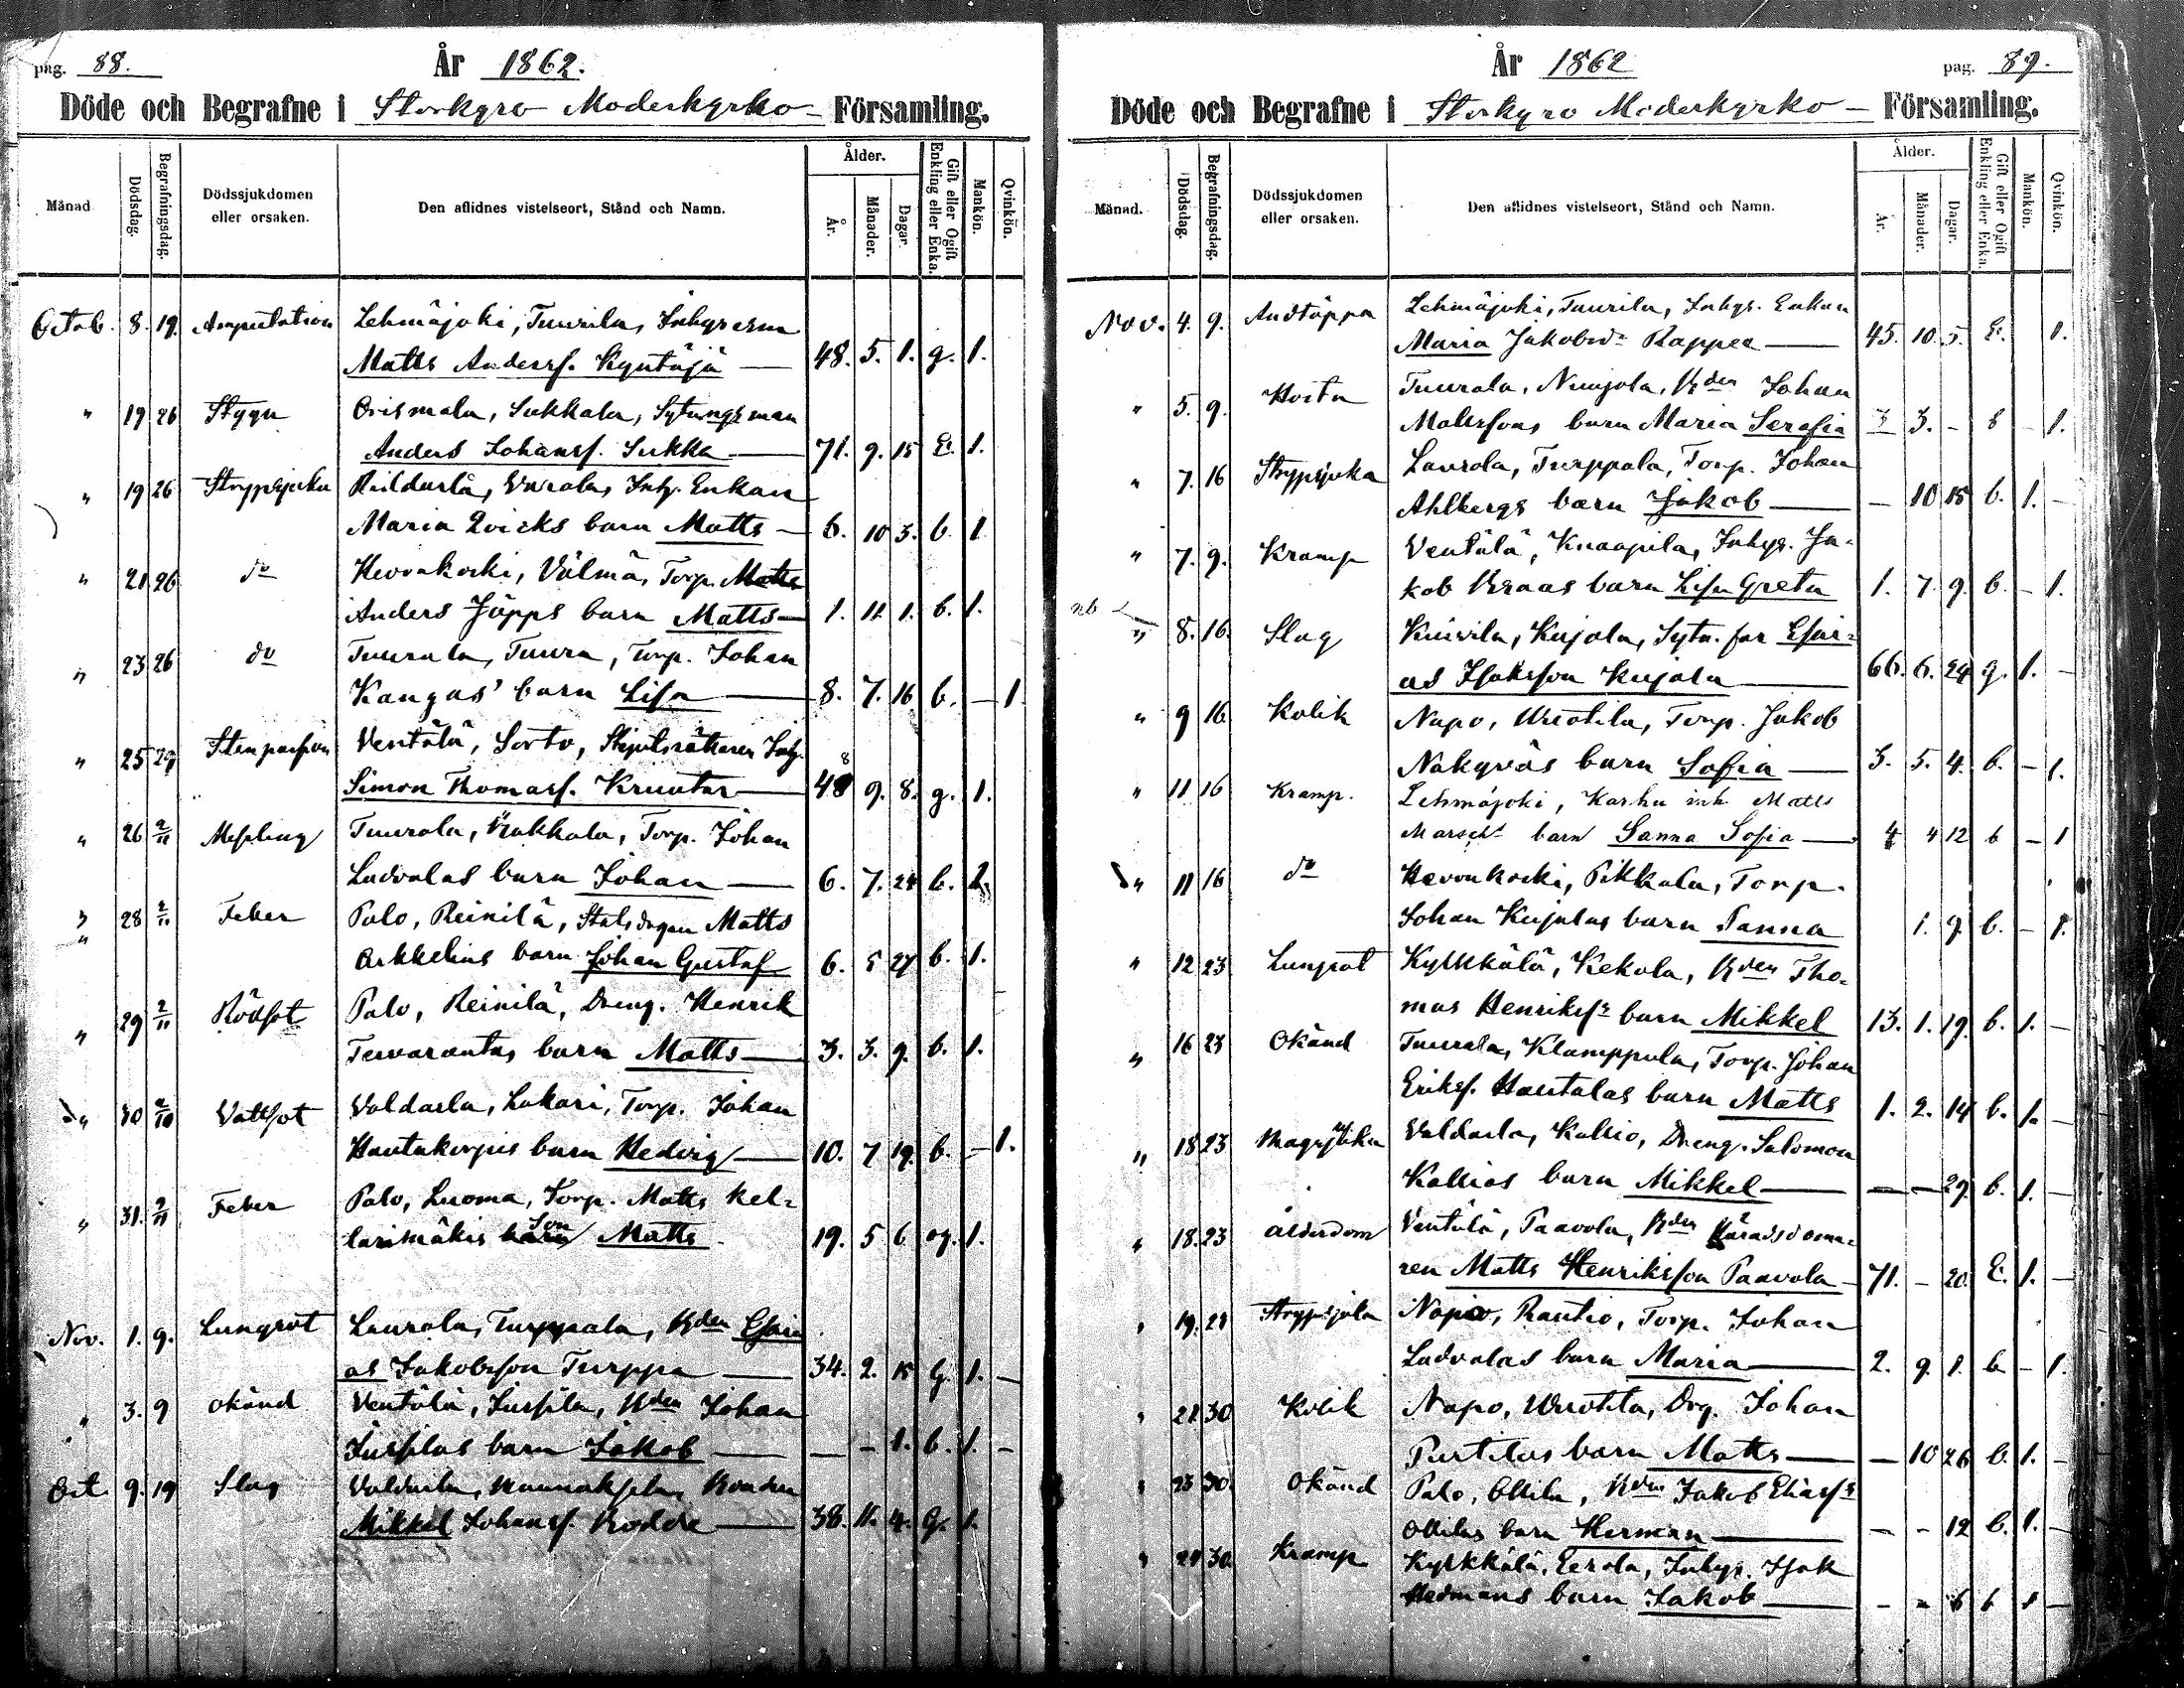 pag. 88.
År 1862.
Döde och Begrafne i Storkyro Moderkyrko- Församling.
Månad
Dödsdag.
Begrafningsdag.
Dödssjukdomen eller orsaken.
Den aflidnes vistelseort, Stånd och Namn.
Ålder.
År.
Månader.
Dagar.
Gift eller Ogift Enkling eller Enka.
Mankön.
Qvinkön.
Octob. 8. 19. Amputation Lehmäjoki, Tuurila, Inhysesm
Matts Andersf. Kyntäjä — 48. 5. 1. g. 1.
" 19 26 Stygn Orismala, Sukkala, Sytningsman
Anders Johansf. Sukka — 71. 9. 15 E. 1.
" 19 26 Strypsjuka Enkan
Maria Qvicks barn Matts — 6. 10 3. b. 1
" 21 26 do Hevonkoski, Välmä, Torp. Matts
Anders Jäpps barn Matts — 1. 11. 1. b. 1.
" 23 26 do Tuurala, Tuura, Torp. Johan
Kangas' barn Lisa — 8. 7. 16. b. — 1
" 25 29 Ventälä, Sorto, Inhy.
Simon Thomasf. Kruutar — 48 9. 8. g. 1.
" 26 2/11 Messling Tuurala, Torp. Johan
Ladvalas barn Johan — 6. 7. 24 b. 1.
" 28 2/11 Feber Palo, Reinilä, Matts
Arkkelins barn Johan Gustaf 6. 5 27 b. 1.
" 29 2/11 Rödsot Palo, Reinilä, Dreng. Henrik
Tervarantas barn Matts — 3. 3. 9. b. 1.
" 30 2/10 Vattsot Valdarla, Lakari, Torp. Johan
Hautakorpis barn Hedvig — 10. 7 19. b. — 1.
" 31. 2/11 Feber Palo, Luoma, Torp. Matts Kel-
larimäkis barn Son Matts 19. 5 6 og. 1.
Nov. 1. 9. Lungsot Laurola, Turppala, Bden Esai
as Jakobsson Turppa — 34. 2. 15 g. 1. —
" 3. 9 okänd Ventälä, Jussila, Bden Johan
Jussilas barn Jakob — — — 1. b. 1. —
Oct. 9. 19 Slag Valdarla, Bonden
Mikkel Johansf. — 38. 11. 4. g. 1.
År 1862
pag. 89.
Döde och Begrafne i Storkyro Moderkyrko- Församling.
Månad.
Dödsdag.
Begrafningsdag.
Dödssjukdomen eller orsaken.
Den aflidnes vistelseort, Stånd och Namn.
Ålder.
År.
Månader.
Dagar.
Gift eller Ogift Enkling eller Enka.
Mankön.
Qvinkön.
Nov. 4. 9. Andtäppa Lehmäjoki, Tuurila, Inhys. Enkan
Maria Jakobsdr Rappee — 45. 10. 5. E. 1.
" 5. 9. Hosta Tuurala, Bden Johan
Mattssons barn Maria Serafia 3 3. - b - 1.
" 7. 16 Strypsjuka Laurola, Turppala, Torp. Johan
Ahlbergs barn Jakob — — 10 15 b. 1. —
" 7. 9. Kramp Ventälä, Knaapila, Inhys. Ja-
kob Braas barn Lisa Greta 1. 7. 9. b. — 1.
nb
" 8. 16. Slag Kuivila, Kujala, Sytn. far Esai-
as Isaksson Kujala — 66. 6. 24 g. 1. —
" 9 16 Kolik Napo, Uusitila, Torp. Jakob
Näkyväs barn Sofia — 3. 5. 4. b. — 1.
" 11 16 Kramp. Lehmäjoki, Karhu inh. Matts
barn Sanna Sofia — 4 4 12 b — 1
" 11 16 do Hevonkoski, Pikkala, Torp.
Johan Kujalas barn Sanna 1. 9. b. — 1.
" 12 23 Lungsot Kylkkälä, Kekola, Bden Tho-
mas Henriksfs barn Mikkel 13. 1. 19. b. 1. —
" 16 23 Okänd Tuurala, Klamppula, Torp. Johan
Eriksf. Hautalas barn Matts 1. 2. 14 b. 1. —
" 18 23 Valdarla, Kallio, Dreng. Salomon
Kallios barn Mikkel — — — 29. b. 1. —
" 18. 23 Ålderdom Ventälä, Paavola, Bden Häradsdoma-
ren Matts Henriksson Paavola — 71. — 20. E. 1. —
" 19. 24 Strypsjuka Napo, Rautio, Torp. Johan
Ladvalas barn Maria — 2. 9. 1. b — 1.
" 21 30 Kolik Napo, Uusitila, Drg. Johan
Purtilas barn Matts — — 10 26 b. 1. —
" 23 30. Okänd Palo, Ollila, Bden Jakob Eliasfs
Ollilas barn Herman — — — 12 b. 1. —
" 24 30. Kramp Kylkkälä, Eerola, Inhys. Isak
Hedmans barn Jakob — — — 6 b 1 —